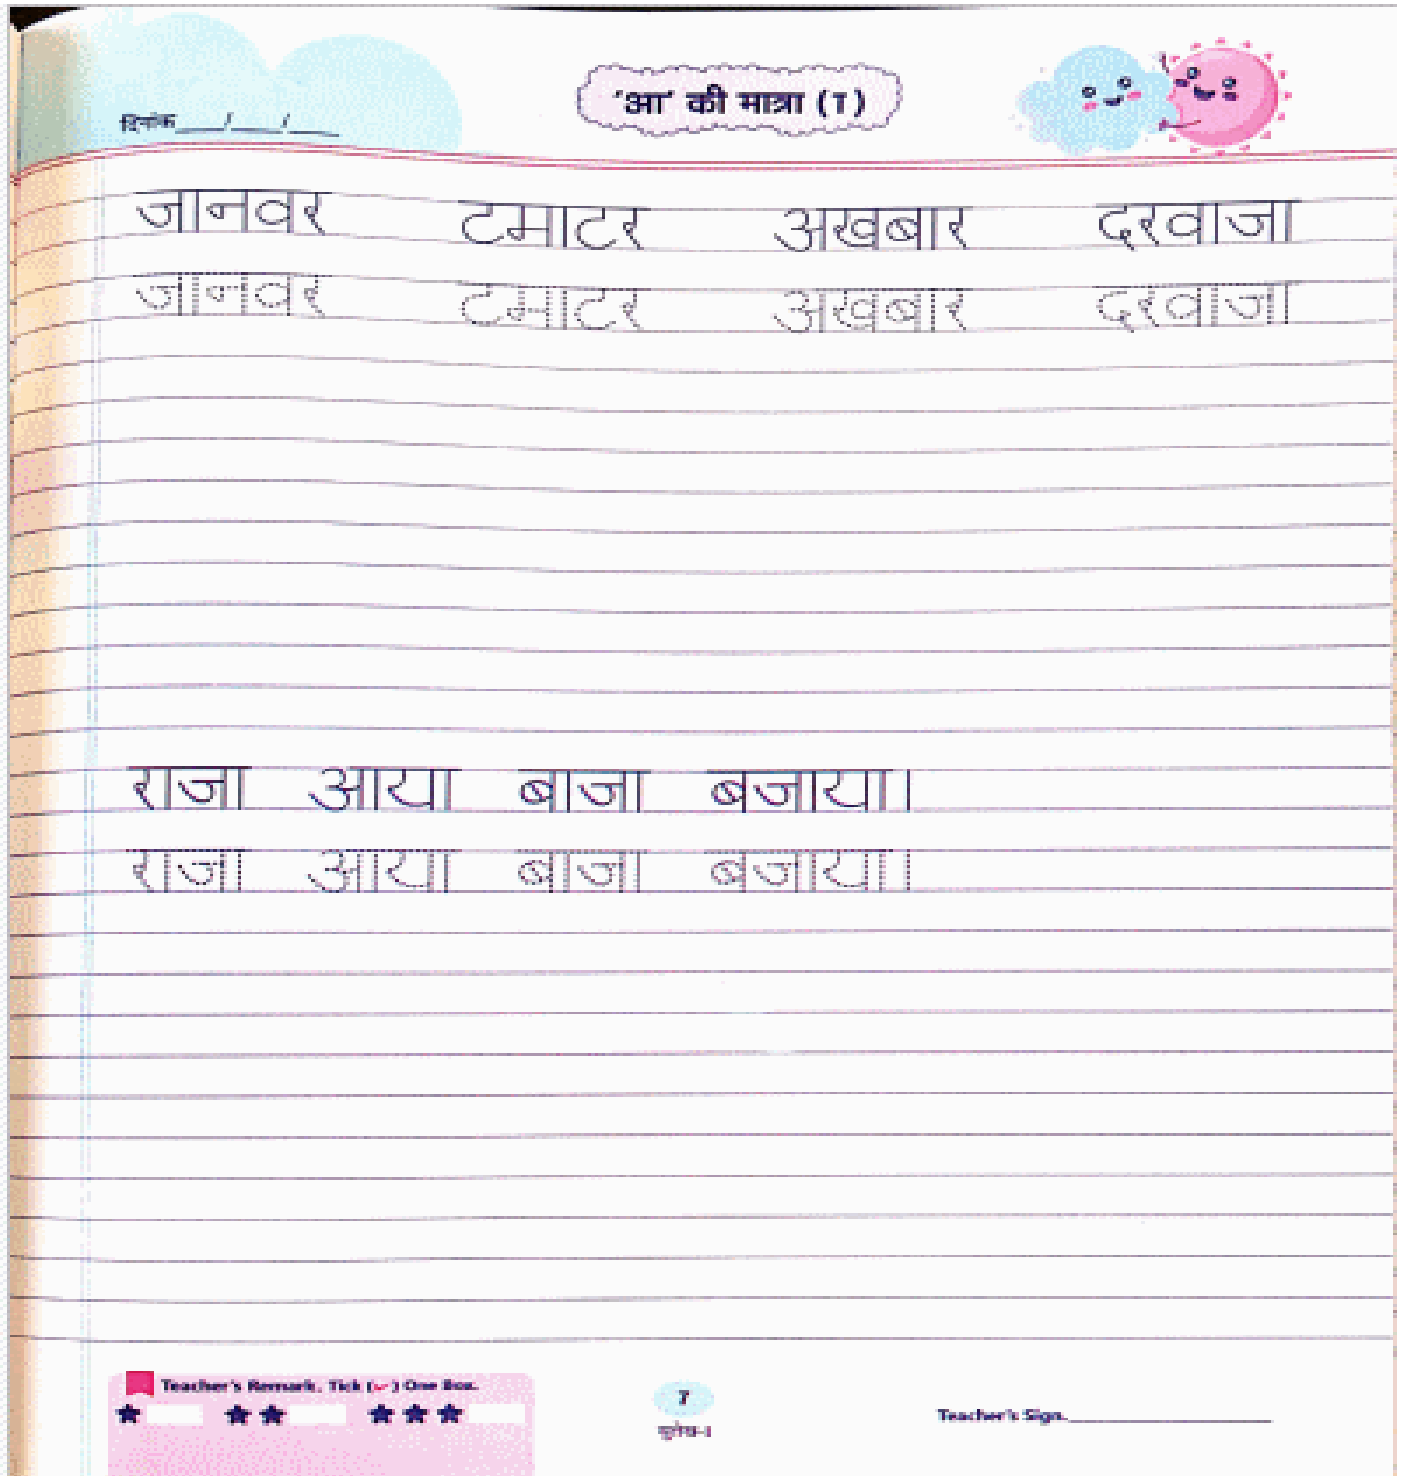 'आ' की मात्रा (ा)
दिनांक___/___/___
जानवर टमाटर अखबार दरवाजा
जानवर टमाटर अखबार दरवाजा
राजा आया बाजा बजाया।
राजा आया बाजा बजाया।
Teacher's Remark. Tick (✓) One Box.
7
सुलेख-1
Teacher's Sign.